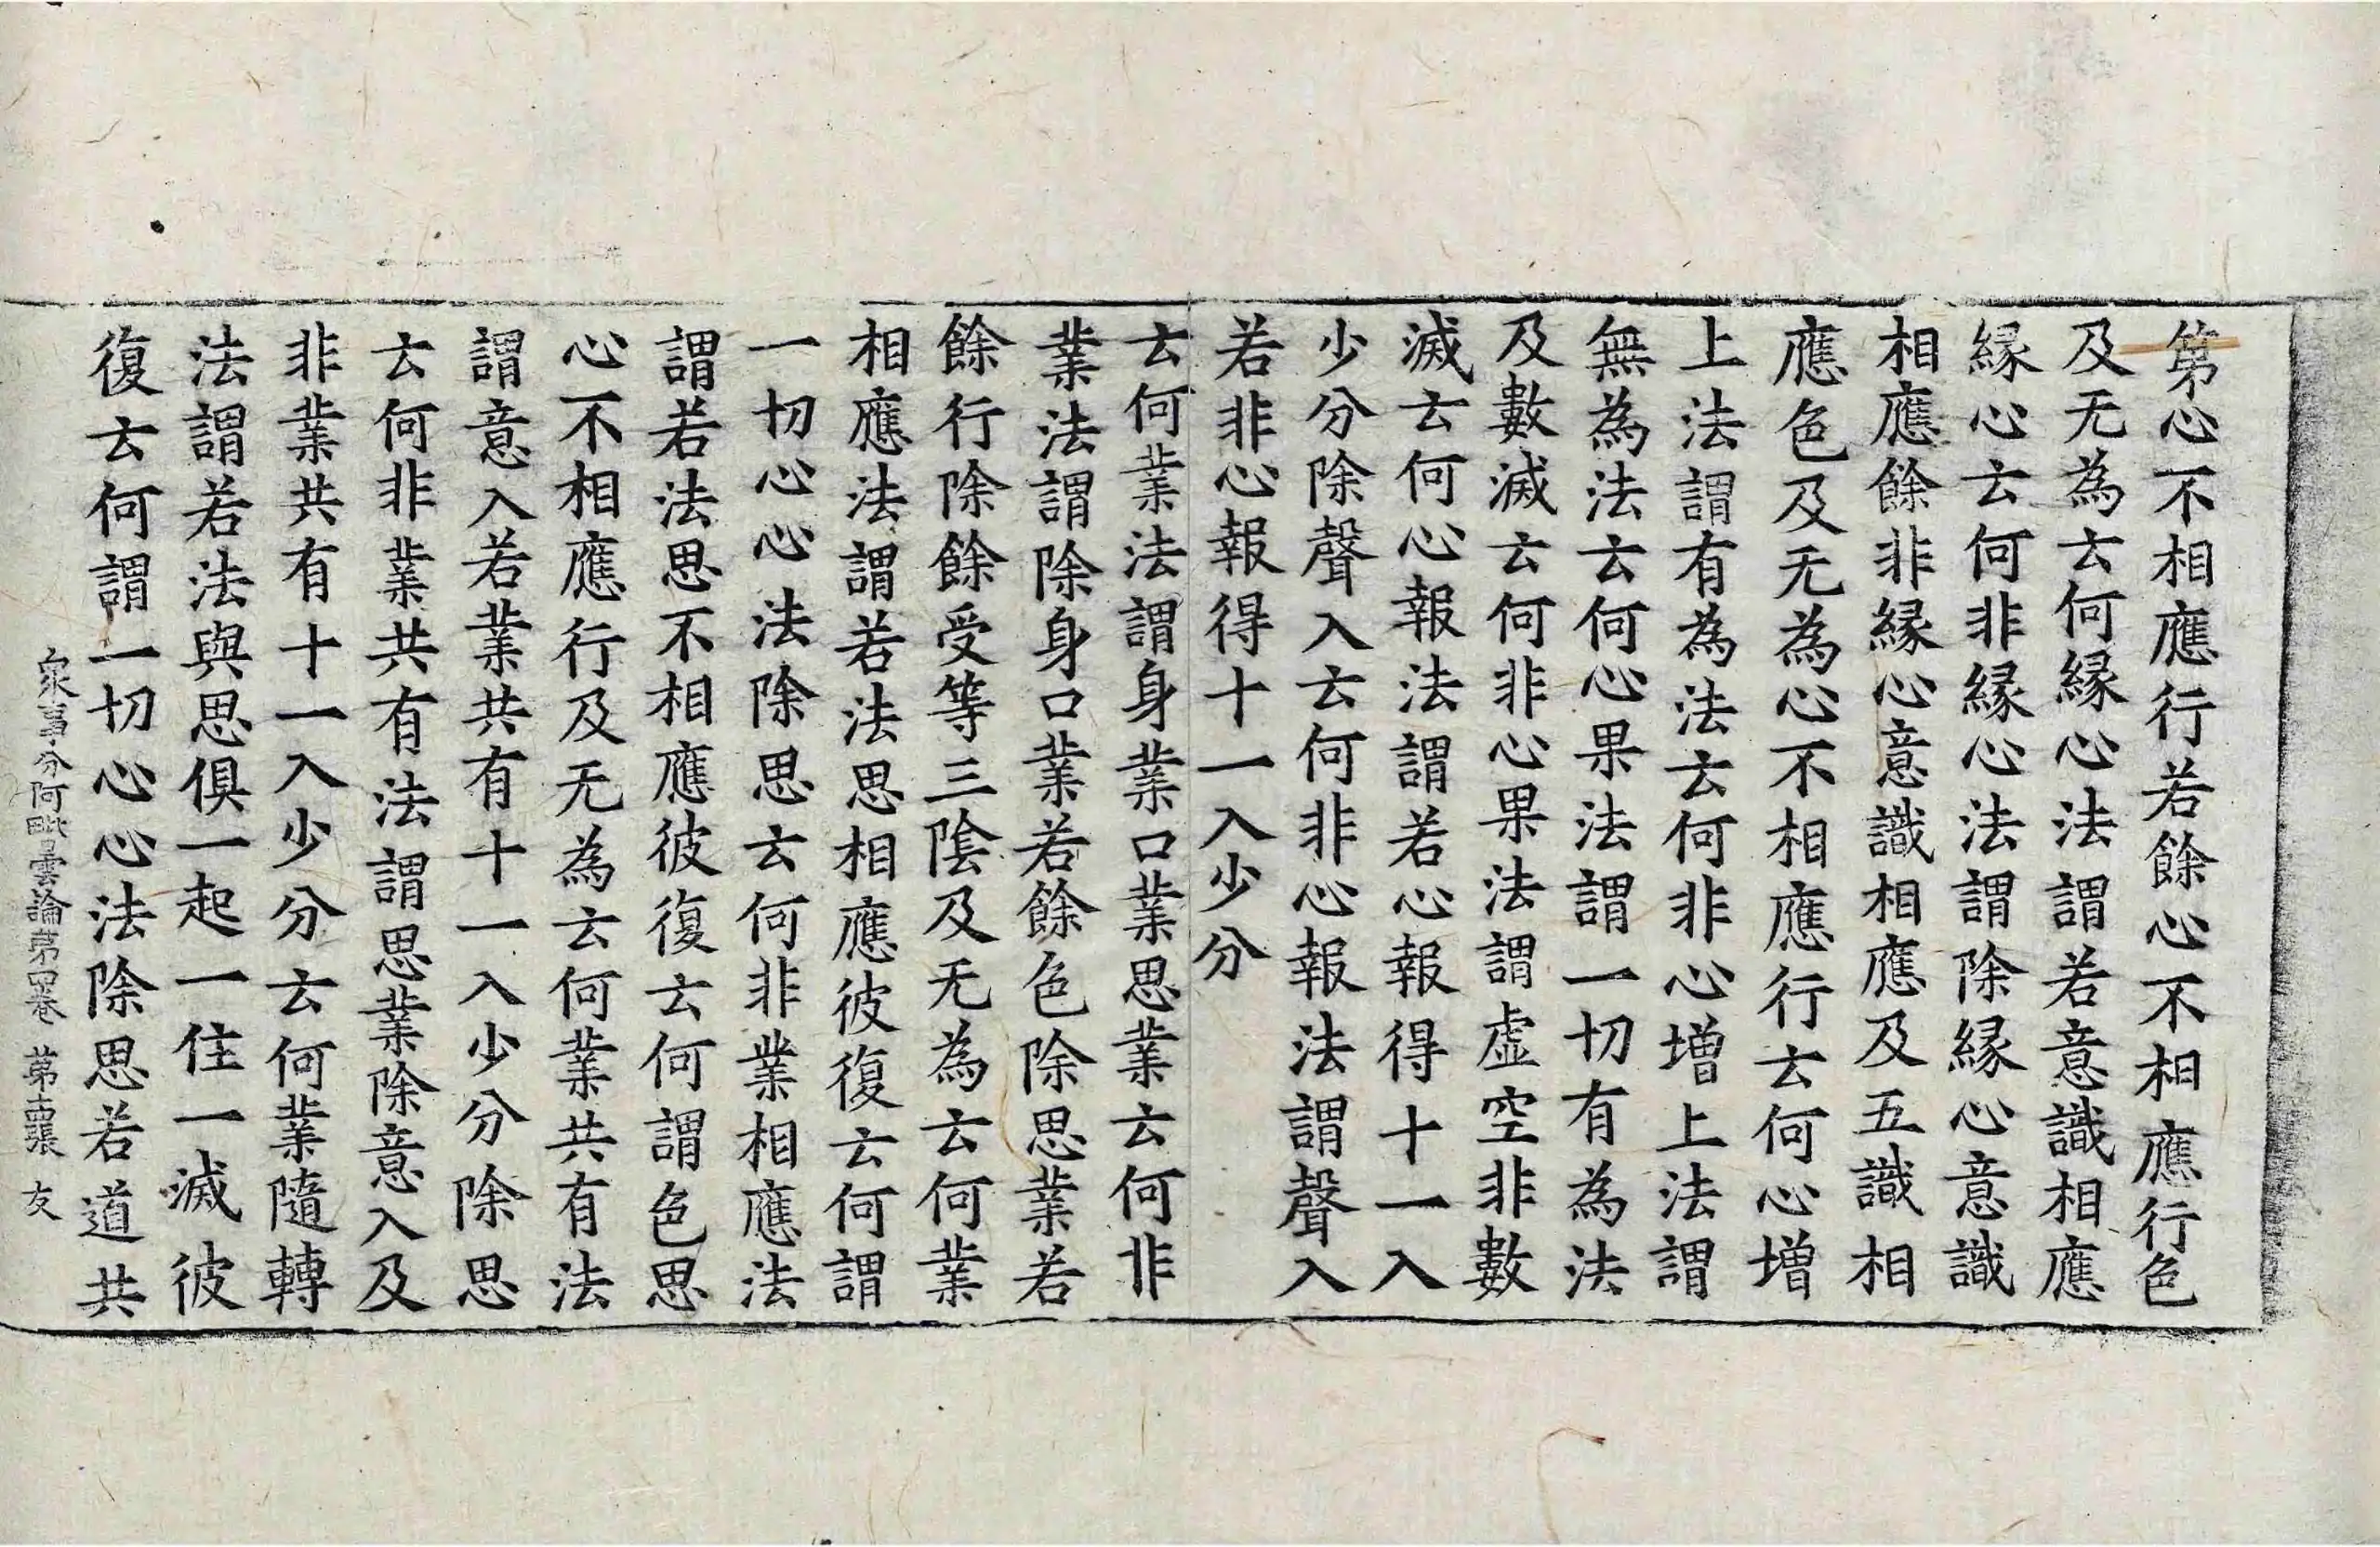 第心不相應行若餘心不相應行色
及无為云何緣心法謂若意識相應
緣心云何非緣心法謂除緣心意識
相應餘非緣心意識相應及五識相
應色及无為心不相應行云何心增
上法謂有為法云何非心增上法謂
無為法云何心果法謂一切有為法
及數滅云何非心果法謂虛空非數
滅云何心報法謂若心報得十一入
少分除聲入云何非心報法謂聲入
若非心報得十一入少分
云何業法謂身業口業思業云何非
業法謂除身口業若餘色除思業若
餘行除餘受等三陰及无為云何業
相應法謂若法思相應彼復云何謂
一切心心法除思云何非業相應法
謂若法思不相應彼復云何謂色思
心不相應行及无為云何業共有法
謂意入若業共有十一入少分除思
云何非業共有法謂思業除意入及
非業共有十一入少分云何業隨轉
法謂若法與思俱一起一住一滅彼
復云何謂一切心心法除思若道共
衆事分阿毗曇論第四卷 第十四張 友